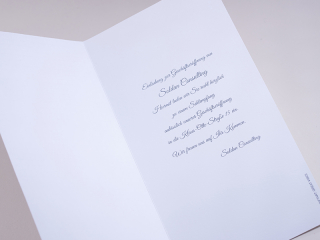 Einladung zur Geschäftseröffnung von
Solda Consulting
Hiermit laden wir Sie recht herzlich
zu einem Sektempfang
anlässlich unserer Geschäftseröffnung
in die Otto Straße 11 ein.
Wir freuen uns auf Ihr Kommen
Consulting